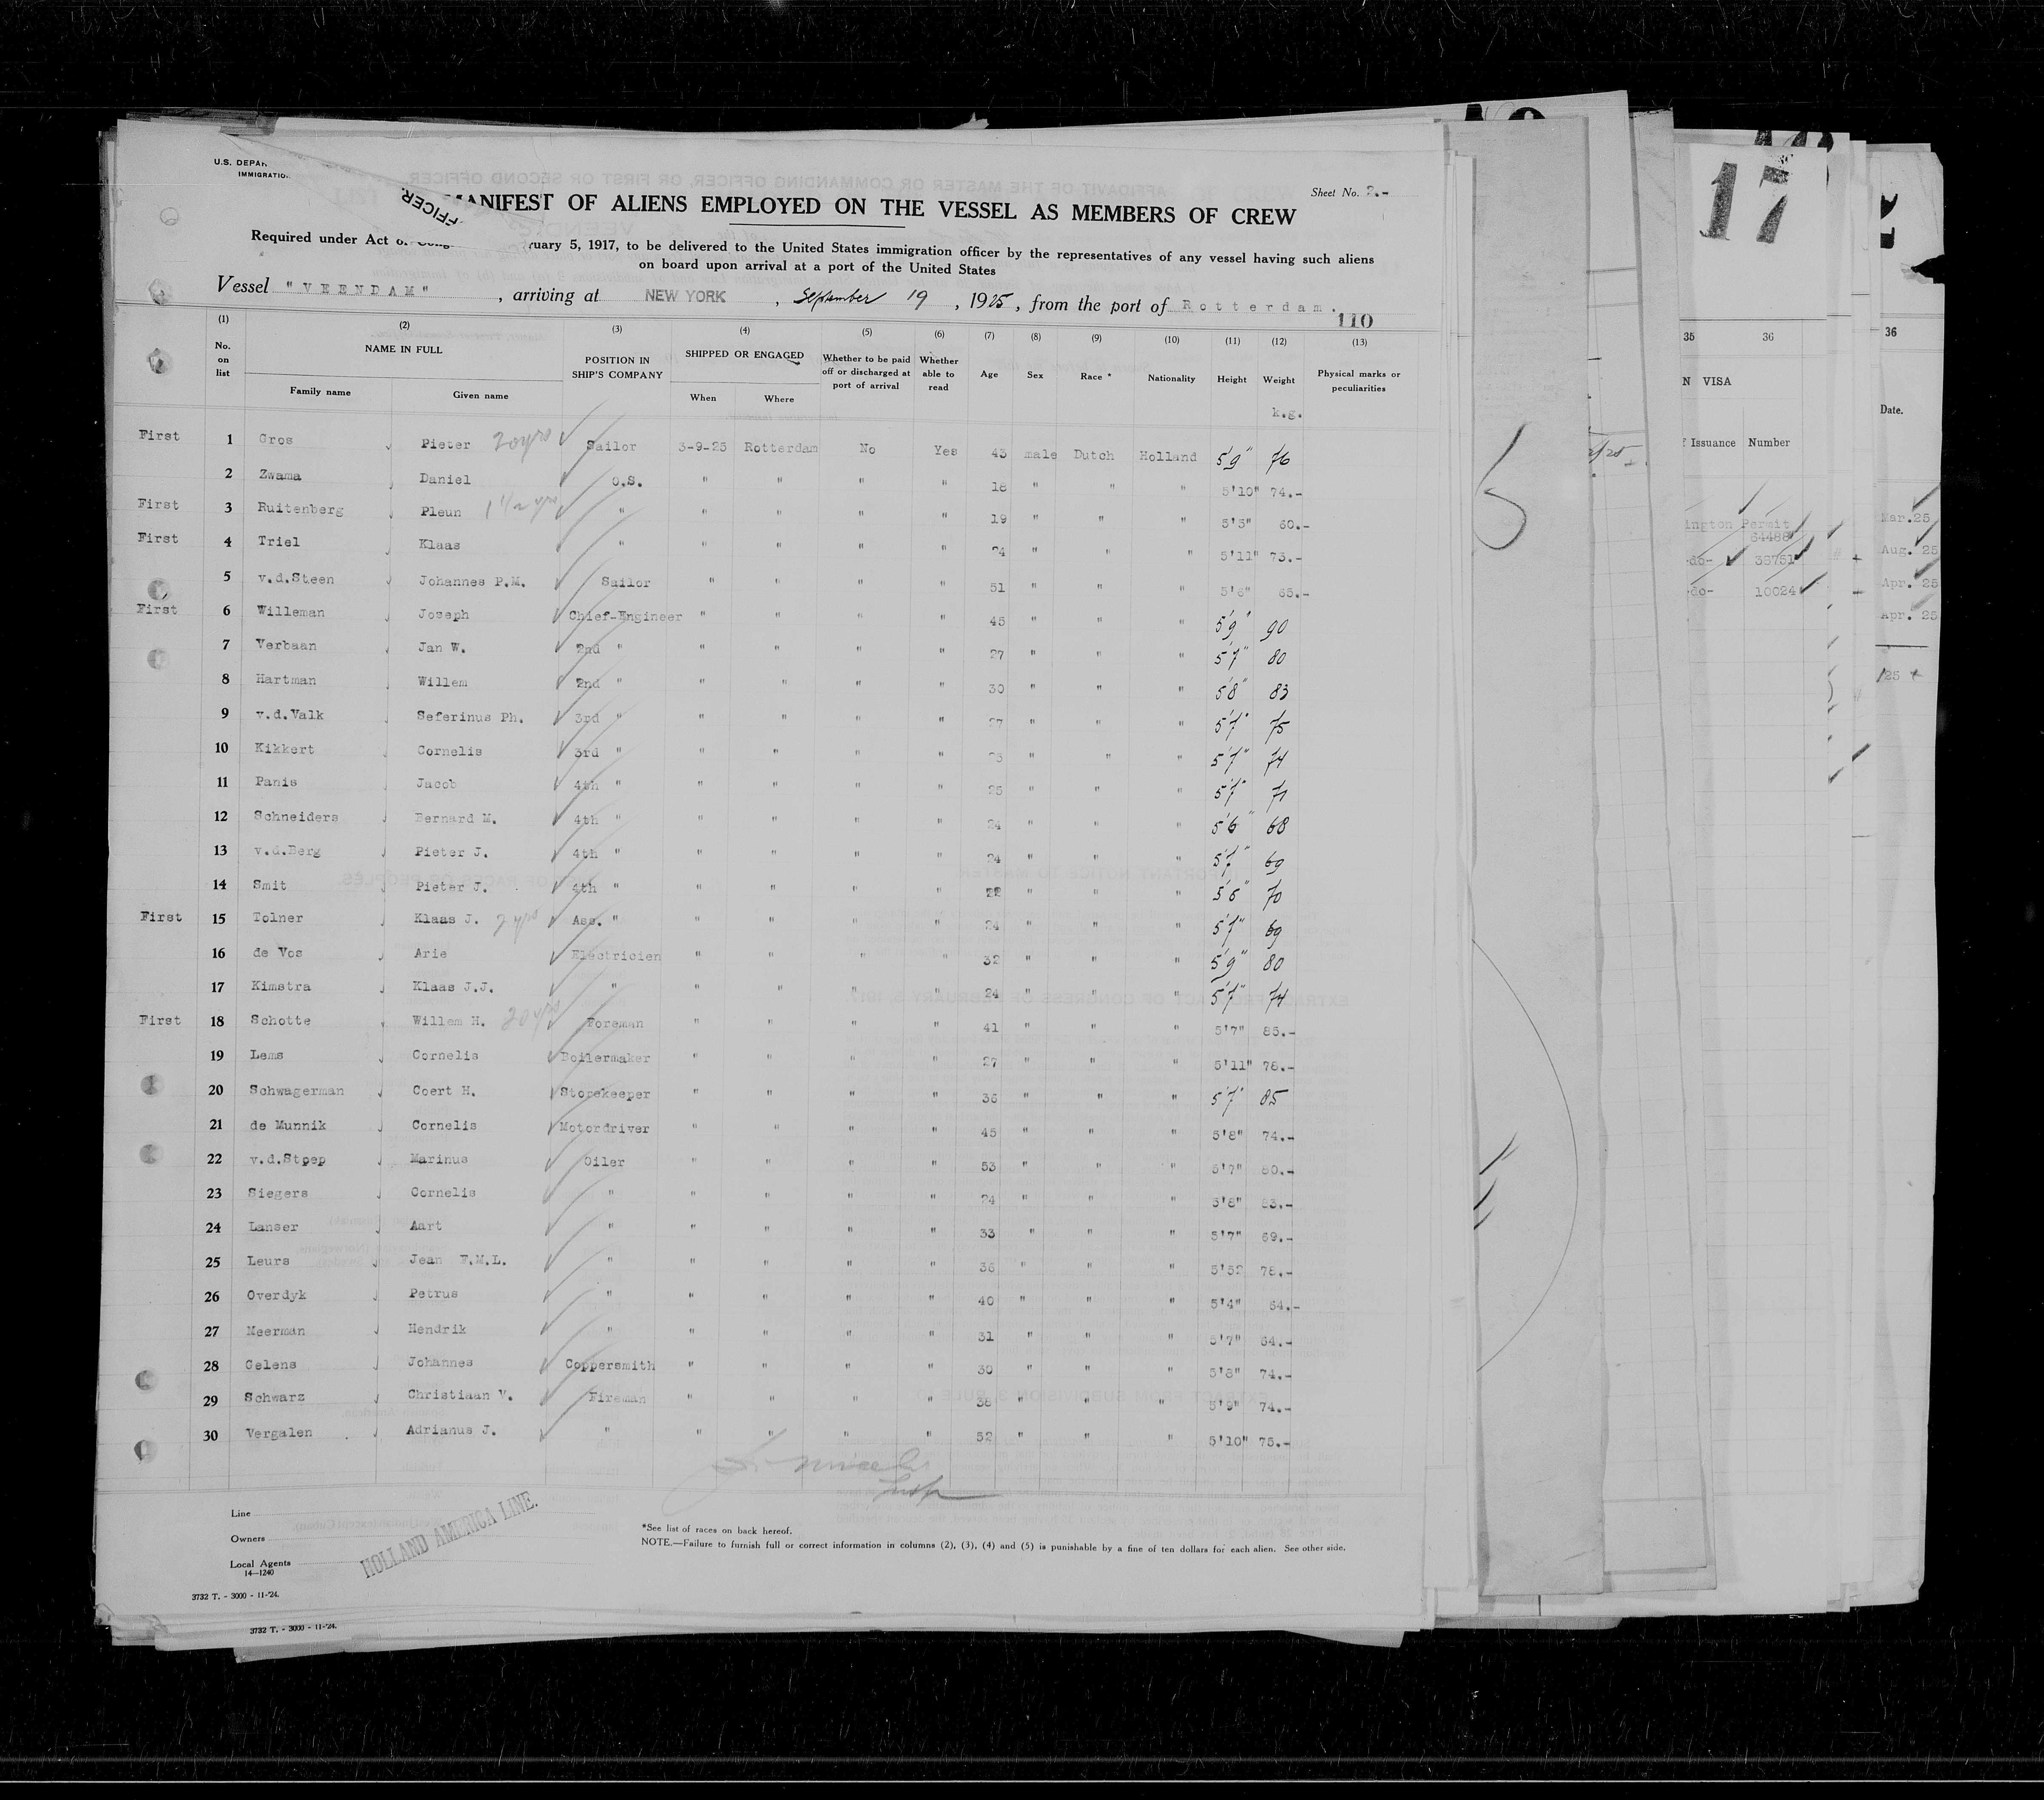 U.S. DEPAR
IMMIGRATIO
FFICER.
Sheet No. 2.-
MANIFEST OF ALIENS EMPLOYED ON THE VESSEL AS MEMBERS OF CREW
Required under Act of Cong ruary 5, 1917, to be delivered to the United States immigration officer by the representatives of any vessel having such aliens
on board upon arrival at a port of the United States
Vessel "VEENDAM", arriving at NEW YORK, September 19, 1925, from the port of Rotterdam.
110
(1) (2) (3) (4) (5) (6) (7) (8) (9) (10) (11) (12) (13)
No. on list NAME IN FULL POSITION IN SHIP'S COMPANY SHIPPED OR ENGAGED Whether to be paid off or discharged at port of arrival Whether able to read Age Sex Race * Nationality Height Weight Physical marks or peculiarities
Family name Given name When Where
k.g.
First 1 Gros Pieter 20 yrs Sailor 3-9-25 Rotterdam No Yes 43 male Dutch Holland 5'9" 76
2 Zwama Daniel O.S. " " " " 18 " " " 5'10" 74.-
First 3 Ruitenberg Pleun 1 1/2 yrs " " " " " 19 " " " 5'3" 60.-
First 4 Triel Klaas " " " " " 24 " " " 5'11" 73.-
5 v.d.Steen Johannes P.M. Sailor " " " " 51 " " " 5'6" 65.-
First 6 Willeman Joseph Chief-Engineer " " " " 45 " " " 5'9" 90
7 Verbaan Jan W. 2nd " " " " " 27 " " " 5'7" 80
8 Hartman Willem 2nd " " " " " 30 " " " 5'8" 83
9 v.d.Valk Seferinus Ph. 3rd " " " " " 27 " " " 5'7" 75
10 Kikkert Cornelis 3rd " " " " " " " " 5'7" 74
11 Panis Jacob 4th " " " " " 25 " " " 5'7" 71
12 Schneiders Bernard M. 4th " " " " " 24 " " " 5'6" 68
13 v.d.Berg Pieter J. 4th " " " " " 24 " " " 5'7" 69
14 Smit Pieter J. 4th " " " " " 22 " " " 5'6" 70
First 15 Tolner Klaas J. 2 yrs Ass. " " " " " 24 " " " 5'7" 69
16 de Vos Arie Electricien " " " " 32 " " " 5'9" 80
17 Kimstra Klaas J.J. " " " " " 24 " " " 5'7" 74
First 18 Schotte Willem H. 20 yrs Foreman " " " " 41 " " " 5'7" 85.-
19 Lems Cornelis Boilermaker " " " " 27 " " " 5'11" 78.-
20 Schwagerman Coert H. Storekeeper " " " " 36 " " " 5'7" 85
21 de Munnik Cornelis Motordriver " " " " 45 " " " 5'8" 74.-
22 v.d.Stoep Marinus Oiler " " " " 53 " " " 5'7" 80.-
23 Siegers Cornelis " " " " " 24 " " " 5'8" 83.-
24 Lanser Aart " " " " " 33 " " " 5'7" 69.-
25 Leurs Jean F.M.L. " " " " " 36 " " " 5'52 78.-
26 Overdyk Petrus " " " " " 40 " " " 5'4" 64.-
27 Meerman Hendrik " " " " " 31 " " " 5'7" 64.-
28 Gelens Johannes Coppersmith " " " " 30 " " " 5'8" 74.-
29 Schwarz Christiaan V. Fireman " " " " 38 " " " 5'9" 74.-
30 Vergalen Adrianus J. " " " " " 52 " " " 5'10" 75.-
Insp
Line
Owners
Local Agents
14—1240
HOLLAND AMERICA LINE.
*See list of races on back hereof.
NOTE.—Failure to furnish full or correct information in columns (2), (3), (4) and (5) is punishable by a fine of ten dollars for each alien. See other side.
3732 T. - 3000 - 11-'24.
3732 T. - 3000 - 11-'24.
17
35 36
N VISA
Issuance Number
ington Permit
64488
-do- 36751
-do- 10024
36
Date.
Mar.25
Aug. 25
Apr. 25
Apr. 25
/25